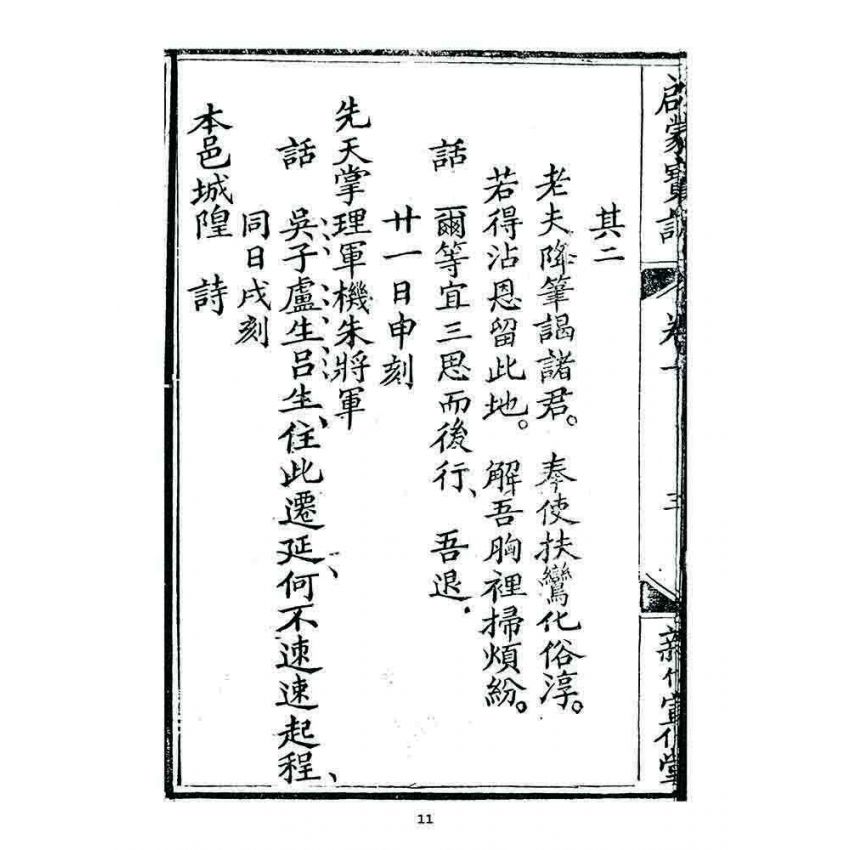 啟蒙寶訓 卷一 三 新竹宣化堂
其二
老夫降筆謁諸君。奉使扶鸞化俗淳。
若得沾恩留此地。解吾胸裡掃煩紛。
話 爾等宜三思而後行、吾退.
廿一日申刻
先天掌理軍機朱將軍
話 吳子盧生呂生、住此遷延何不速速起程、
同日戌刻
本邑城隍 詩
11